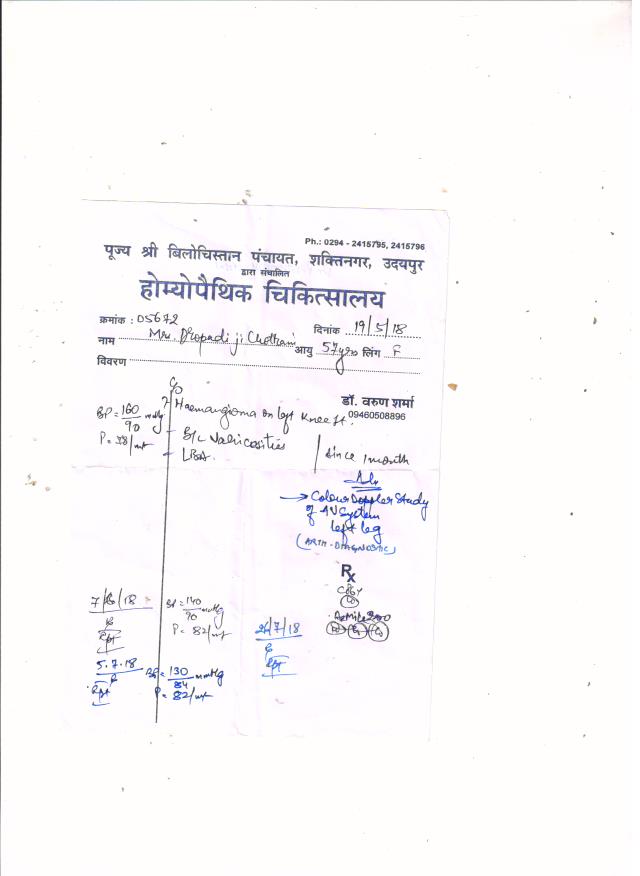 Ph.: 0294 - 2415795, 2415796
पूज्य श्री बिलोचिस्तान पंचायत, शक्तिनगर, उदयपुर
द्वारा संचालित
होम्योपैथिक चिकित्सालय
क्रमांक : 05672
दिनांक 19/5/18
नाम Mrs. Dropadi ji आयु 57yrs लिंग F
विवरण
डॉ. वरुण शर्मा
09460508896
C/o
? Haemangioma on left Knee jt.
BP = 160/90 mmHg
P = /mt
B/L Varicosities
LBA.
since 1 month
Adv
→ Colour Doppler Study
of AV System
left leg
(ARTH-DIAGNOSTIC)
Rx
7/6/18
BP = 140/90 mmHg
P = 82/mt
Rpt
5.7.18
BP = 130/84 mmHg
P = 82/mt
Rpt
/7/18
Rpt